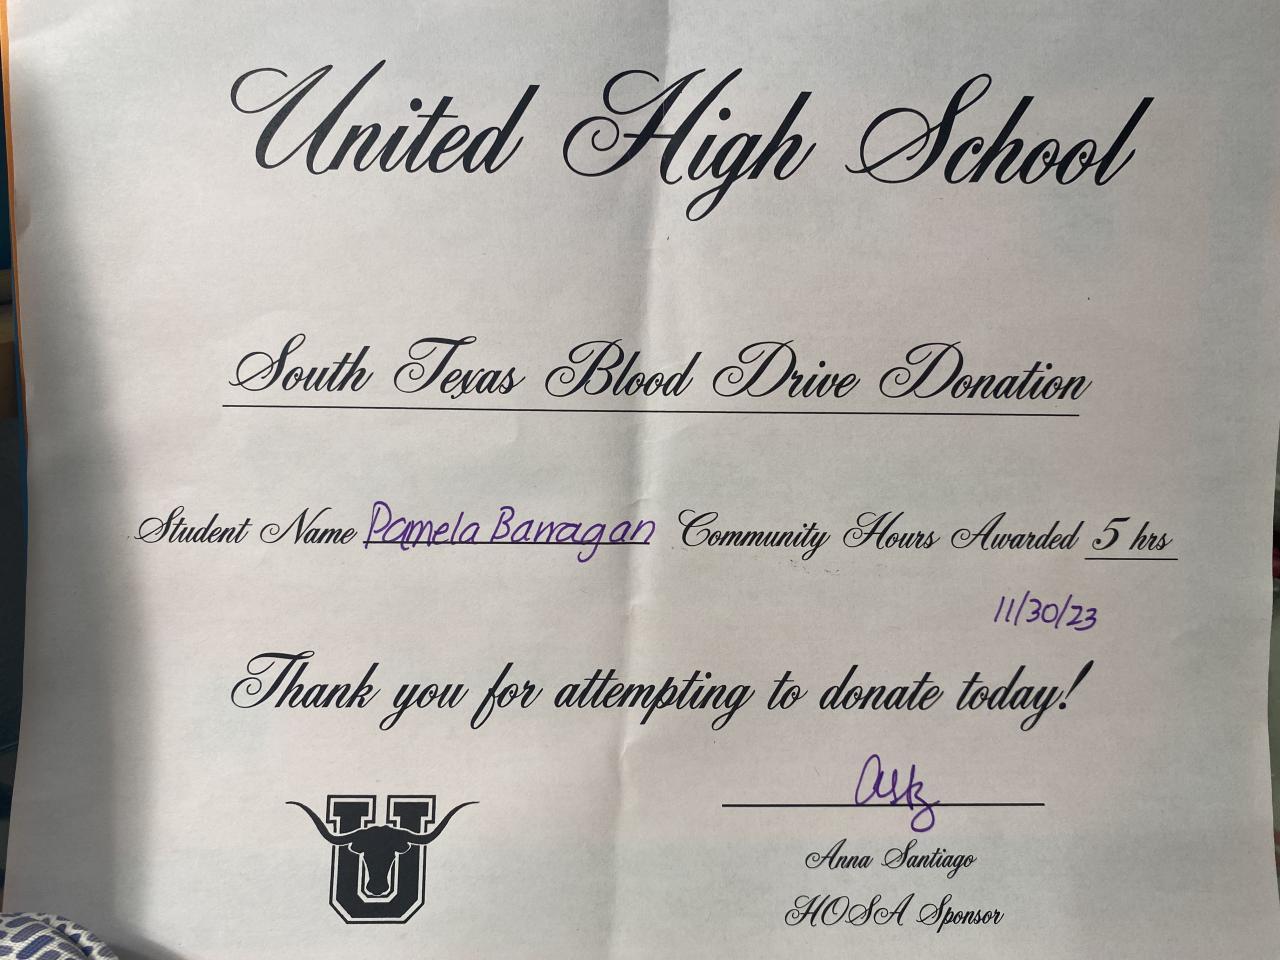 United High School
South Texas Blood Drive Donation
Student Name Pamela Barragan Community Hours Awarded 5 hrs
11/30/23
Thank you for attempting to donate today!
U
Anna Santiago
HOSA Sponsor